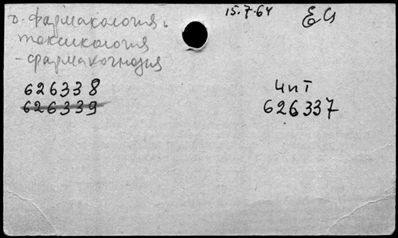 15.7.64
фармакология,
токсикология
-фармакогнозия
626338
626339
4 п I
626337